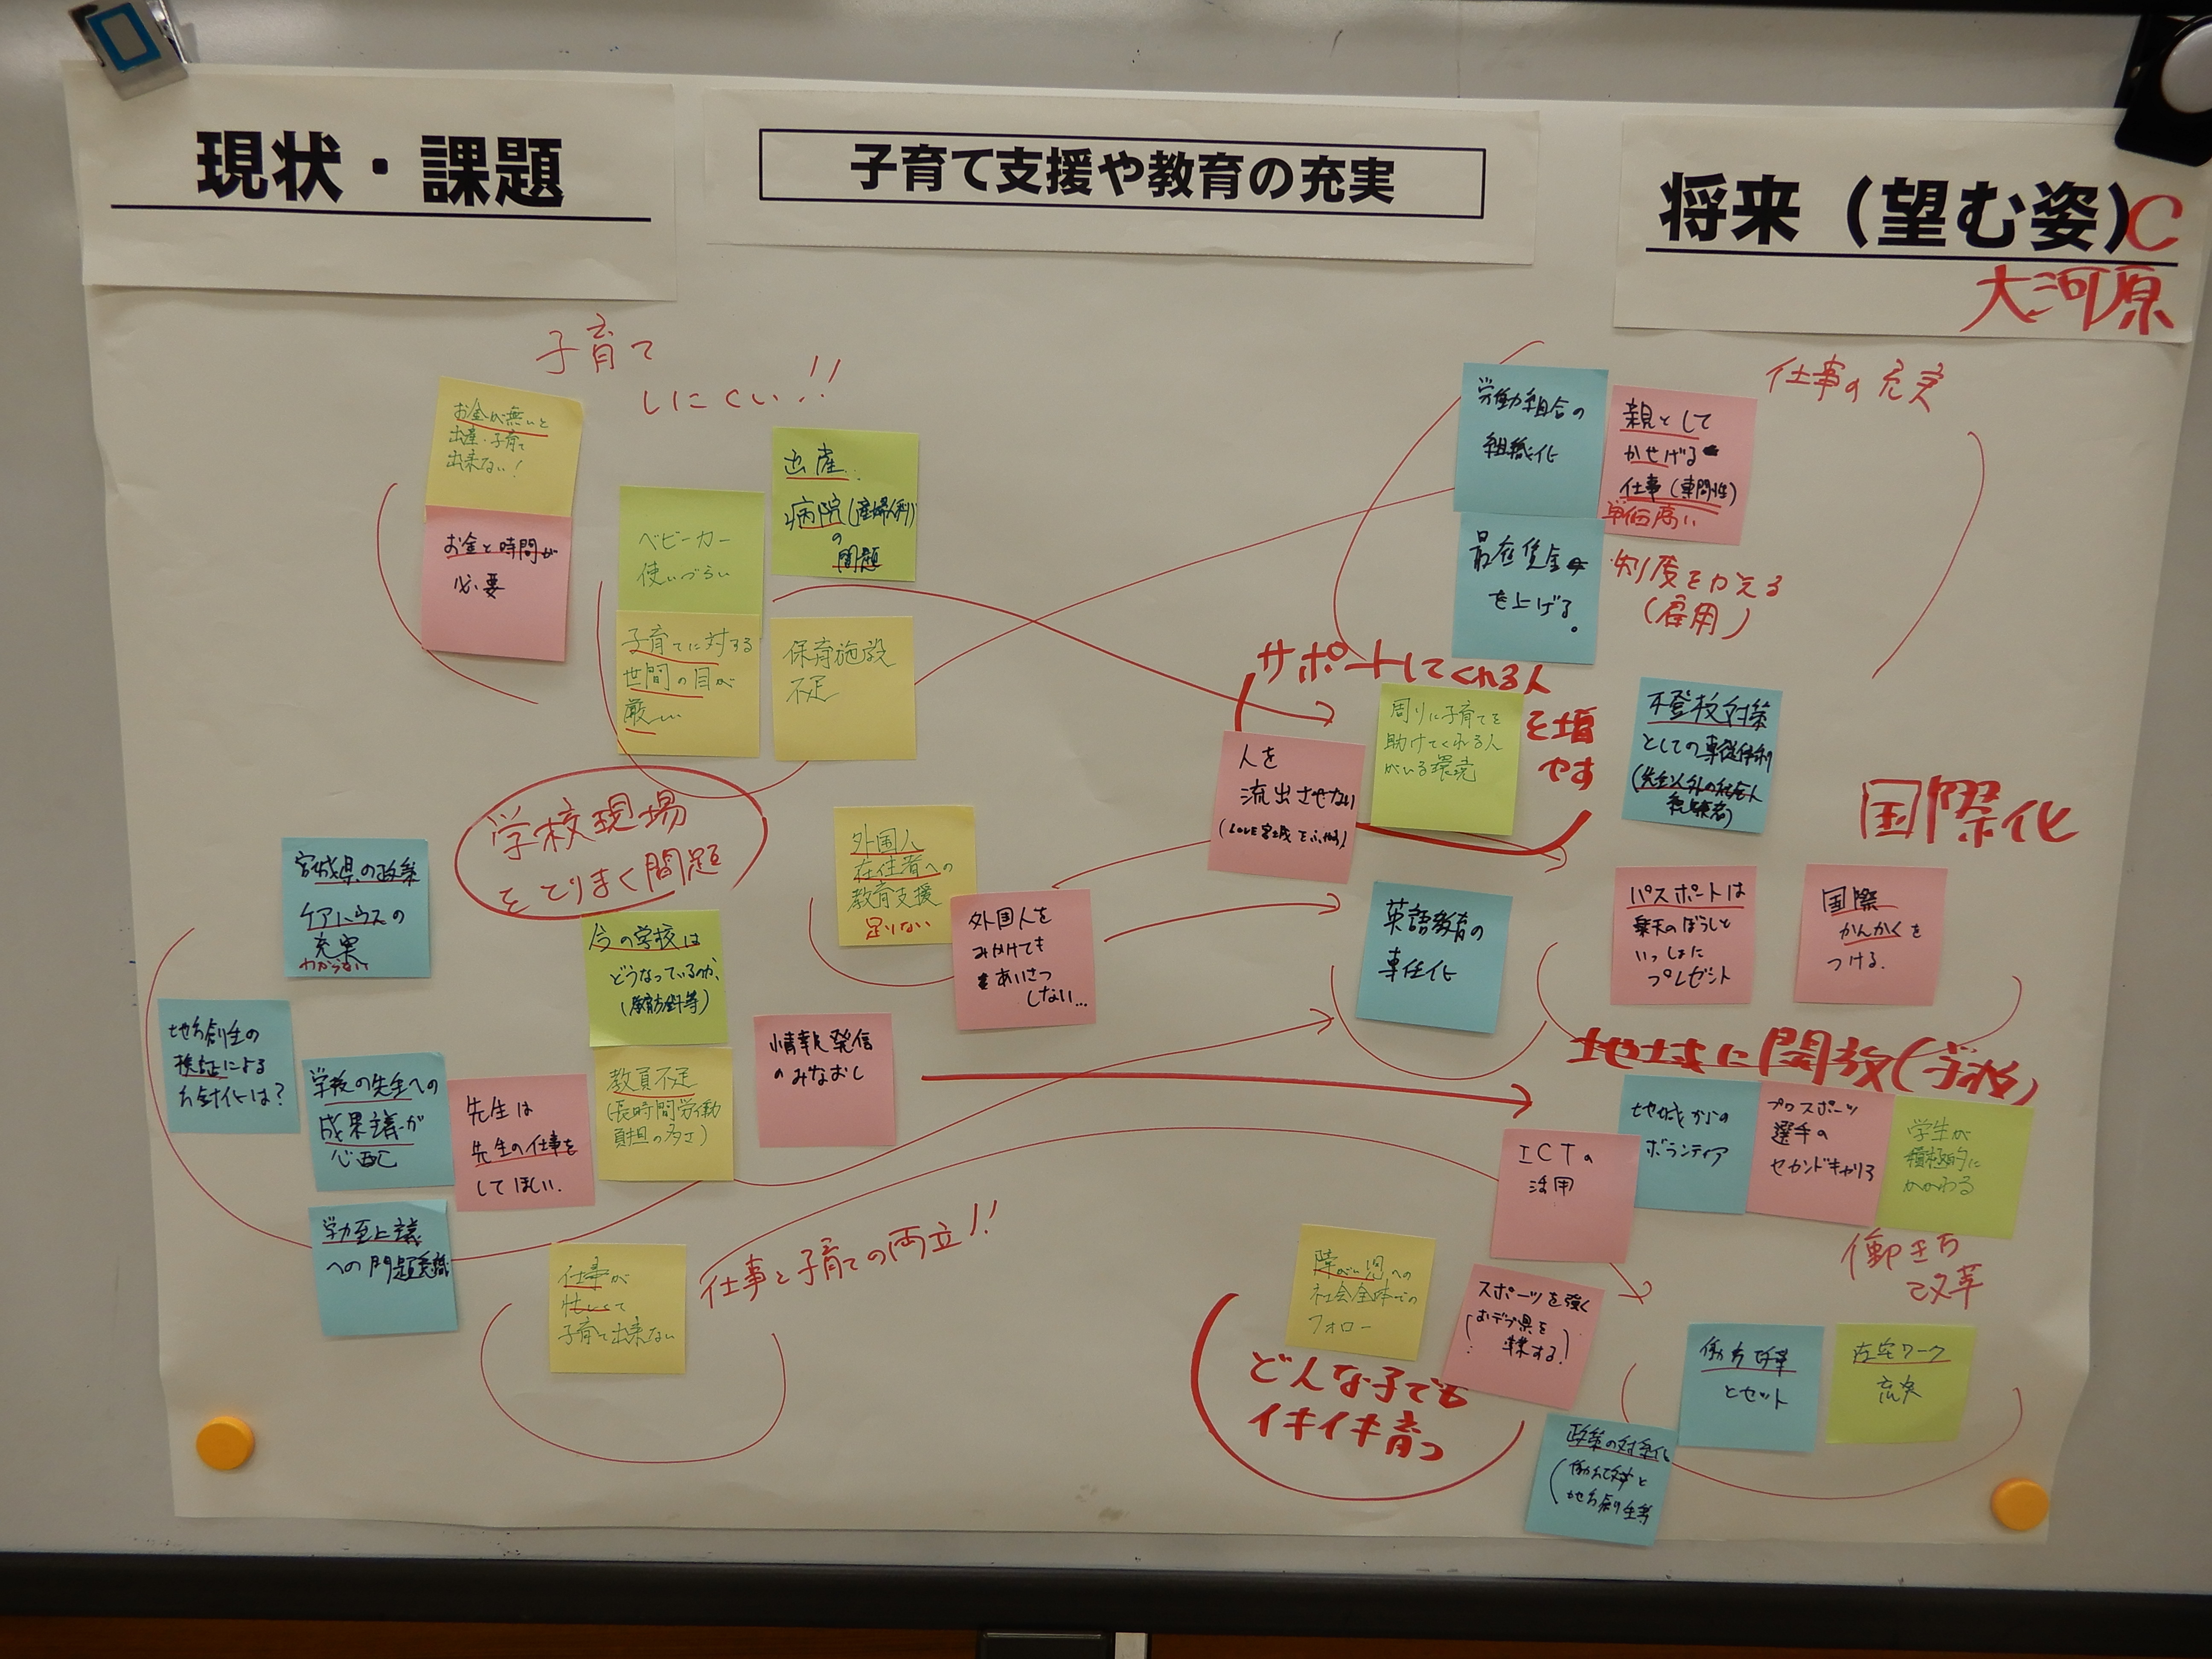 現状・課題
子育て支援や教育の充実
将来（望む姿）C
大河原
子育て
しにくい!!
お金が無いと
出産・子育て
出来ない！
お金と時間が
必要
ベビーカー
使いづらい
出産
病院（産婦人科）
の
問題
子育てに対する
世間の目が
厳しい
保育施設
不足
学校現場
をとりまく問題
宮城県の政策
ケアハウスの
充実
わからない
地方創生の
検証による
方針化は？
学校の先生への
成果主義が
心配
先生は
先生の仕事を
してほしい.
学力至上主義
への問題意識
今の学校は
どうなっているのか、
（教育方針等）
教員不足
（長時間労働
負担の多さ）
情報発信
のみなおし
外国人
在住者への
教育支援
足りない
外国人を
みかけても
あいさつ
しない…
仕事が
忙しくて
子育て出来ない
仕事と子育ての両立!!
仕事の充実
労働組合の
組織化
親として
かせげる
仕事（専門性）
単価高い
最低賃金
を上げる。
制度をかえる
（雇用）
サポートしてくれる人
を増
やす
人を
流出させない
（LOVE宮城をふやす）
周りに子育てを
助けてくれる人
がいる環境
不登校対策
としての専従体制
（先生以外の社会人
経験者）
国際化
英語教育の
専任化
パスポートは
楽天のぼうしと
いっしょに
プレゼント
国際
かんかくを
つける.
地域に開放（学校）
ICTの
活用
地域からの
ボランティア
プロスポーツ
選手の
セカンドキャリア
学生が
積極的に
かかわる
働き方
改革
障がい児への
社会全体での
フォロー
スポーツを強く
（おデブ県を
卒業する！）
どんな子でも
イキイキ育つ
働き方改革
とセット
在宅ワーク
充実
政策の対象化
（働き方改革と
地方創生等